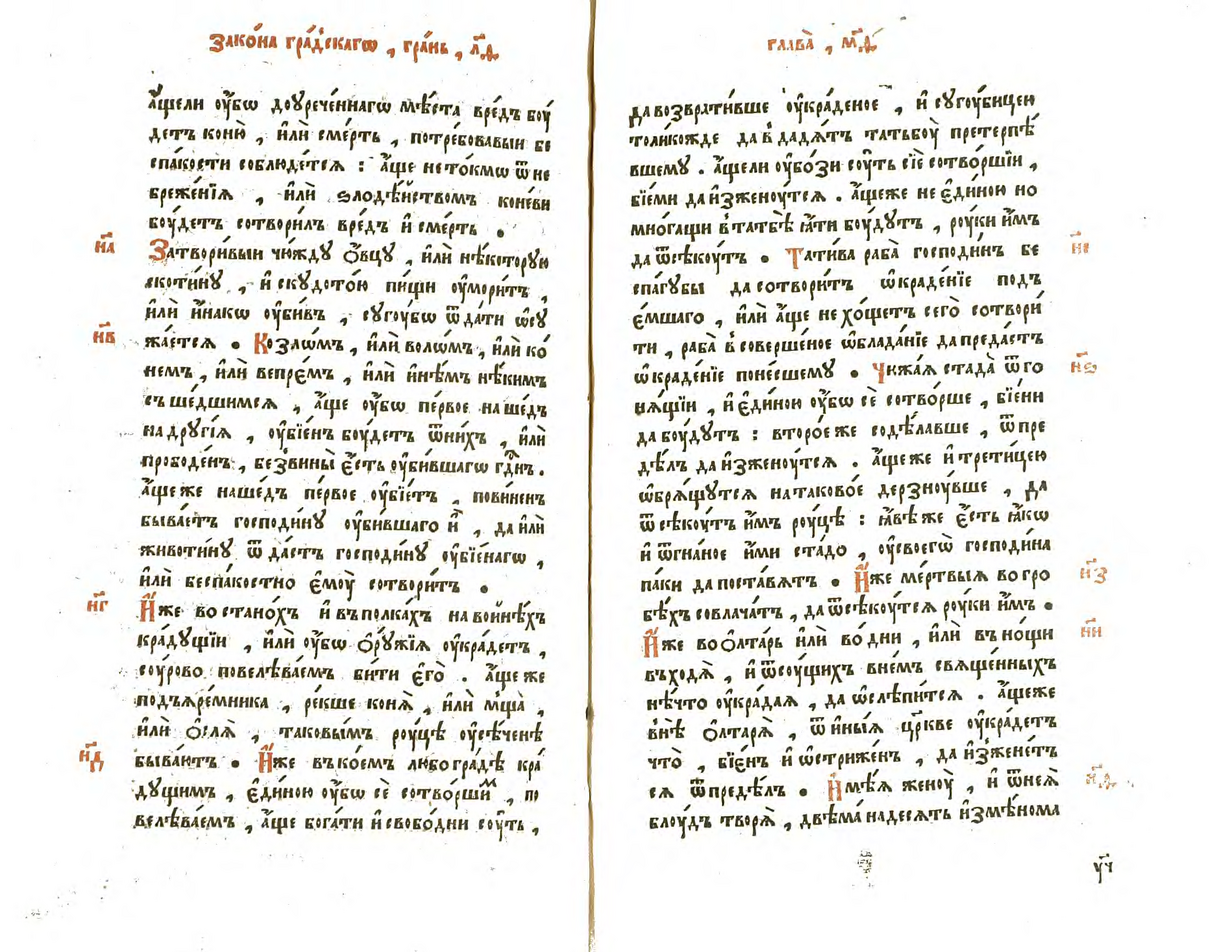 Зако́на гра́дскагѡ , гра́нь , л҃ѳ
а҆́щели ᲂу҆́бѡ доᲂурече́ннагѡ мѣ́ста вре́дъ боу́
детъ коню̀ , и҆лѝ сме́рть , потре́бовавыи бе
спа́кости соблюде́тсѧ : а҆́ще не то́кмѡ ѿ не
бреже́нїѧ , и҆лѝ ѕлодѣ́йствомъ коне́ви
боу́детъ сотвори́лъ вре́дъ и҆ сме́рть .
н҃а
Затвори́выи чю́ждꙋ ѻ҆́вцꙋ , и҆лѝ нѣ́которꙋю
скоти́нꙋ , и҆ скꙋдото́ю пи́щи ᲂу҆мори́тъ ,
и҆лѝ и҆́накѡ ᲂу҆би́въ , сꙋгоу́бѡ ѿда́ти ѡ҆сꙋ
н҃в
жа́етсѧ . Козлѡ́мъ , и҆лѝ волѡ́мъ , и҆лѝ ко́
немъ , и҆лѝ вепре́мъ , и҆лѝ и҆нѣ́мъ нѣ́кимъ
съше́дшимсѧ , а҆́ще ᲂу҆́бѡ пе́рвое наше́дъ
на дрꙋгі́ѧ , ᲂу҆бїе́нъ боу́детъ ѿ ни́хъ , и҆лѝ
прободе́нъ , без̾вины̀ є҆́сть ᲂу҆би́вшагѡ гд҃нъ .
а҆́щеже наше́дъ пе́рвое ᲂу҆бїе́тъ , пови́ненъ
быва́етъ господи́нꙋ ᲂу҆би́вшаго и҆̀ , да и҆лѝ
животи́нꙋ ѿда́стъ господи́нꙋ ᲂу҆бїе́нагѡ ,
и҆лѝ беспа́костно є҆моу̀ сотвори́тъ .
н҃г
И҆́же во стано́хъ и҆ въ полка́хъ на во́инѣхъ
крадꙋ́щїи , и҆лѝ ᲂу҆́бѡ ѻ҆рꙋ́жїѧ ᲂу҆кра́детъ ,
соу́рово повелѣва́емъ би́ти є҆го̀ . а҆́щеже
подъѧре́мника , ре́кше конѧ̀ , и҆лѝ мща̀ ,
и҆лѝ ѻ҆слѧ̀ , таковы́мъ роу́цѣ ᲂу҆сѣ́ченѣ
н҃д
быва́ютъ . И҆́же въ ко́емъ любо гра́дѣ кра́
дꙋщимъ , є҆ди́ною ᲂу҆́бѡ сѐ сотво́ршимъ , по
велѣва́емъ , а҆́ще бога́ти и҆ свобо́дни соу́ть ,
глава̀ , м҃д
да возврати́вше ᲂу҆кра́деное , и҆ сꙋгоу́бицею
толи́кожде да в̾дадѧ́тъ татьбоу̀ претерпѣ́
вшемꙋ . а҆́щели ᲂу҆бо́зи соу́ть сїѐ сотво́ршїи ,
бїе́ми да и҆зженоу́тсѧ . а҆́щеже не є҆ди́ною но
мно́гащи в̾татбѣ̀ ꙗ҆́ти боу́дꙋтъ , роу́ки и҆̀мъ
н҃е
да ѿсѣкоу́тъ . Та́тива раба̀ господи́нъ бе
спа́гꙋбы да сотвори́тъ ѡ҆краде́нїе подъ
е́мшаго , и҆лѝ а҆́ще не хо́щетъ сего̀ сотвори́
ти , раба̀ в̾соверше́ное ѡ҆блада́нїе да преда́стъ
н҃ѕ
ѡ҆краде́нїе поне́сшемꙋ . Чюжа́ѧ стада̀ ѿго
нѧ́щїи , и҆ є҆ди́ною ᲂу҆́бѡ сѐ сотво́рше , бїе́ни
да боу́дꙋтъ : второ́еже содѣ́лавше , ѿ пре
дѣ́лъ да и҆зженоу́тсѧ . а҆́щеже и҆ тре́тицею
ѡ҆брѧ́щꙋтсѧ на таково́е дерзноу́вше , да
ѿсѣкоу́тъ и҆̀мъ роу́цѣ : ꙗ҆́вѣже є҆́сть ꙗ҆́кѡ
и҆ ѿгна́ное и҆́ми ста́до , ᲂу҆ своегѡ̀ господи́на
н҃з
па́ки да поста́вѧтъ . И҆́же ме́ртвыѧ во гро
бѣ́хъ совлача́тъ , да ѿсѣкоу́тсѧ роу́ки и҆̀мъ .
н҃и
И҆́же во ѻ҆лта́рь и҆лѝ во́ дни , и҆лѝ въ нощи
въходѧ̀ , и҆ ѿ соу́щихъ в не́мъ свѧще́нныхъ
нѣ́что ᲂу҆кра́даѧ , да ѡ҆слѣпи́тсѧ . а҆́щеже
внѣ̀ ѻ҆лтарѧ̀ , ѿ и҆ны́ѧ цр҃кве ᲂу҆кра́детъ
что̀ , бїе́нъ и҆ ѡ҆стриже́нъ , да и҆зжене́т
н҃ѳ
сѧ ѿ предѣ́лъ . И҆мѣ́ѧ женоу̀ , и҆ ѿ неѧ̀
блоу́дъ творѧ̀ , двѣ́ма на́десѧть и҆змѣ́нома
ꙋ҃ч